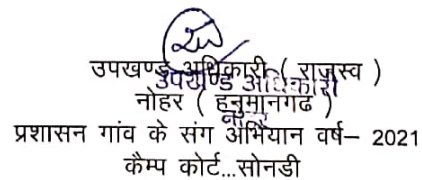 उपखण्ड अधिकारी ( राजस्व )
उपखण्ड अधिकारी
नोहर ( हनुमानगढ )
नोहर
प्रशासन गांव के संग अभियान वर्ष– 2021
कैम्प कोर्ट...सोनडी